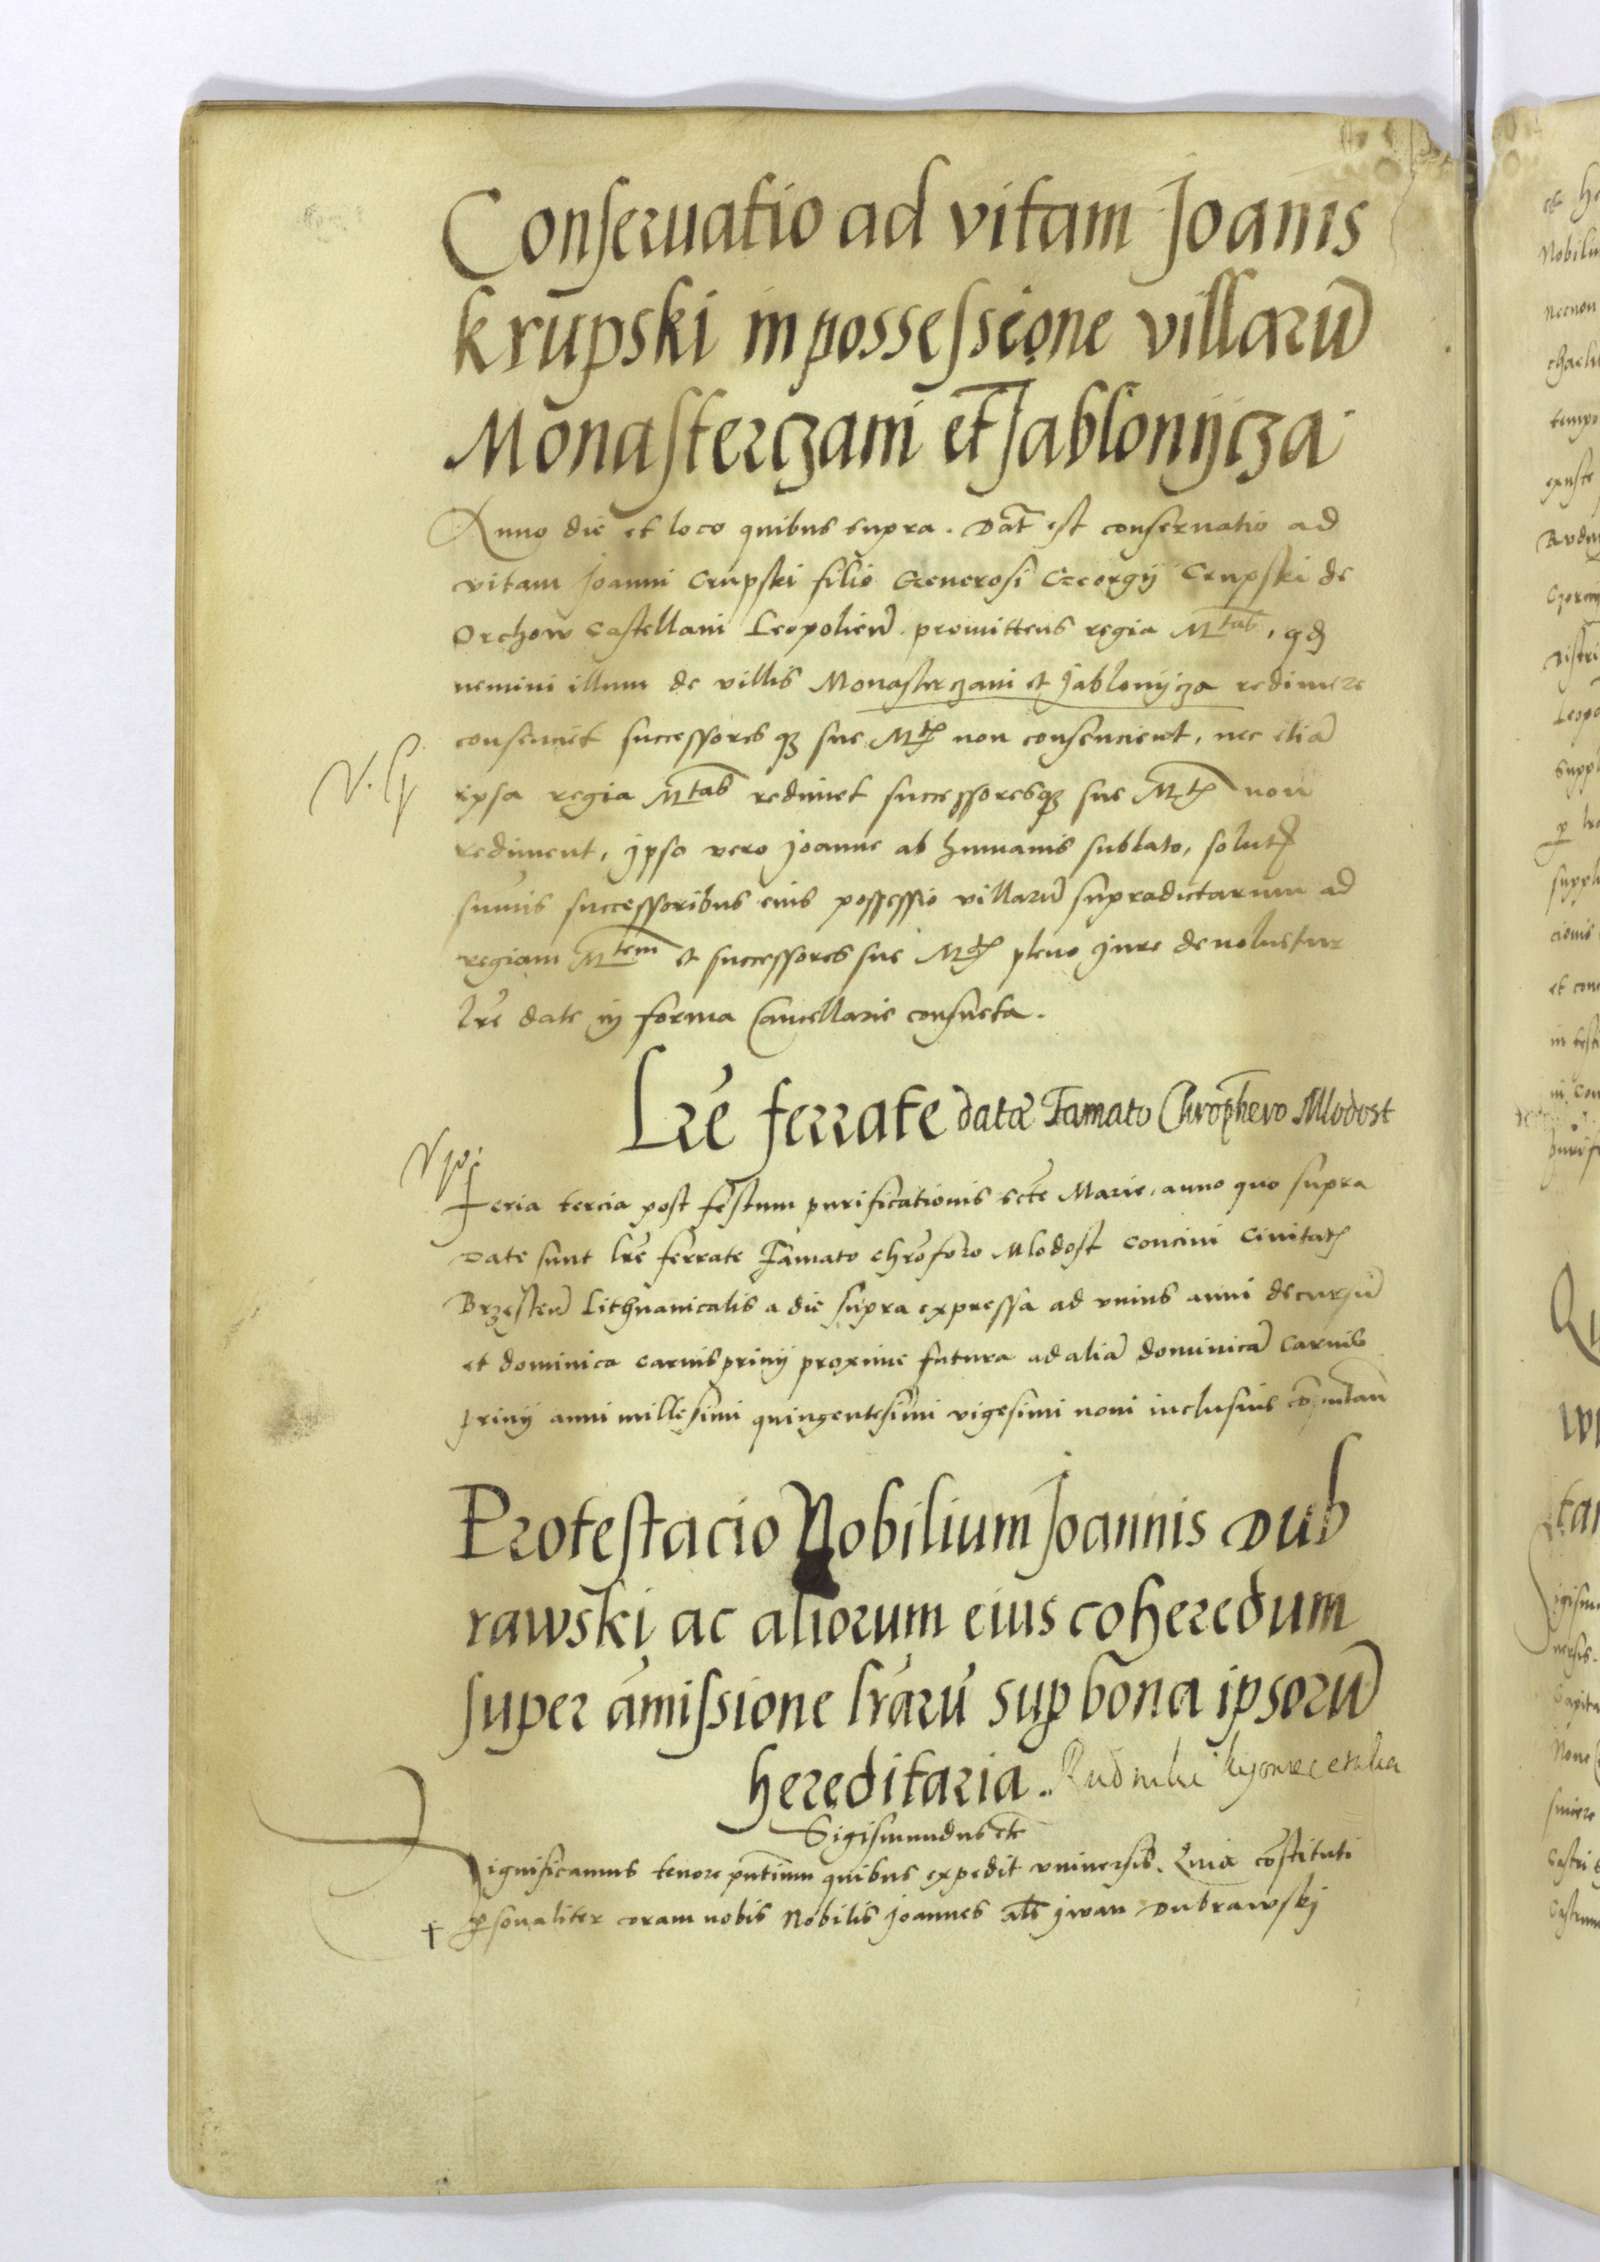 Conseruatio ad vitam Joanis
krupski in possessione villarū
Monasterczani et Jablonycza
Anno die et loco quibus supra. Dat̄ est conseruatio ad
vitam Joanni Crupski filio Generosi Georgij Crupski de
Orchow Castellani Leopolien̄. promittens regia Mtas, qđ
nemini illum de villis Monasterczani et Jablonycza redimere
consenciet successoresqȝ sue Mtis non consencient, nec etiā
ipsa regia Mtas redimet successoresqȝ sue Mtis non
rediment, ipso vero Joanne ab humanis sublato, solutis
sum̄is successoribus eius possessio villarū supradictarum ad
regiam Mtem et successores sue Mtis pleno iure deuoluetur
Lrē date in forma Cancellarie consueta.
Lrē ferrate datæ Famato Chrophero Mlodost
Feria tercia post festum purificationis scte Marie, anno quo supra
Date sunt lrē ferrate Famato chrōforo Mlodost concini Ciuitatis
Brzesten̄ Lithuanicalis a die supra expressa ad vnius anni decursū
et dominica carnispriuij proxime futura ad aliā dominicā Carnis
priuij anni millesimi quingentesimi vigesimi noni inclusiue cōputan̄
Protestacio Nobilium Joannis Dub
rawski ac aliorum eius coheredum
super amissione lrārū sup bona ipsorū
hereditaria.
Sigismundus etc̄
Significamus tenore pn̄tium quibus expedit vniuersis. Quia cōstituti
personaliter coram nobis Nobilis Joannes als Jwan Dubrawskj